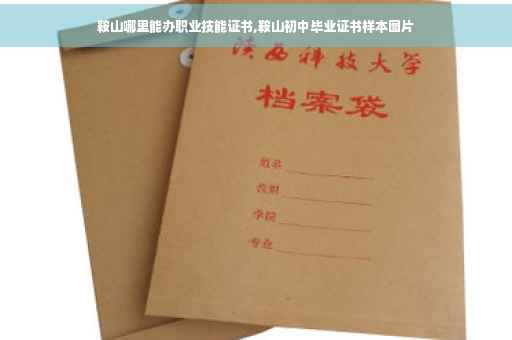 鞍山哪里能办职业技能证书,鞍山初中毕业证书样本图片
陕西科技大学
档案袋
姓名
学院
专业